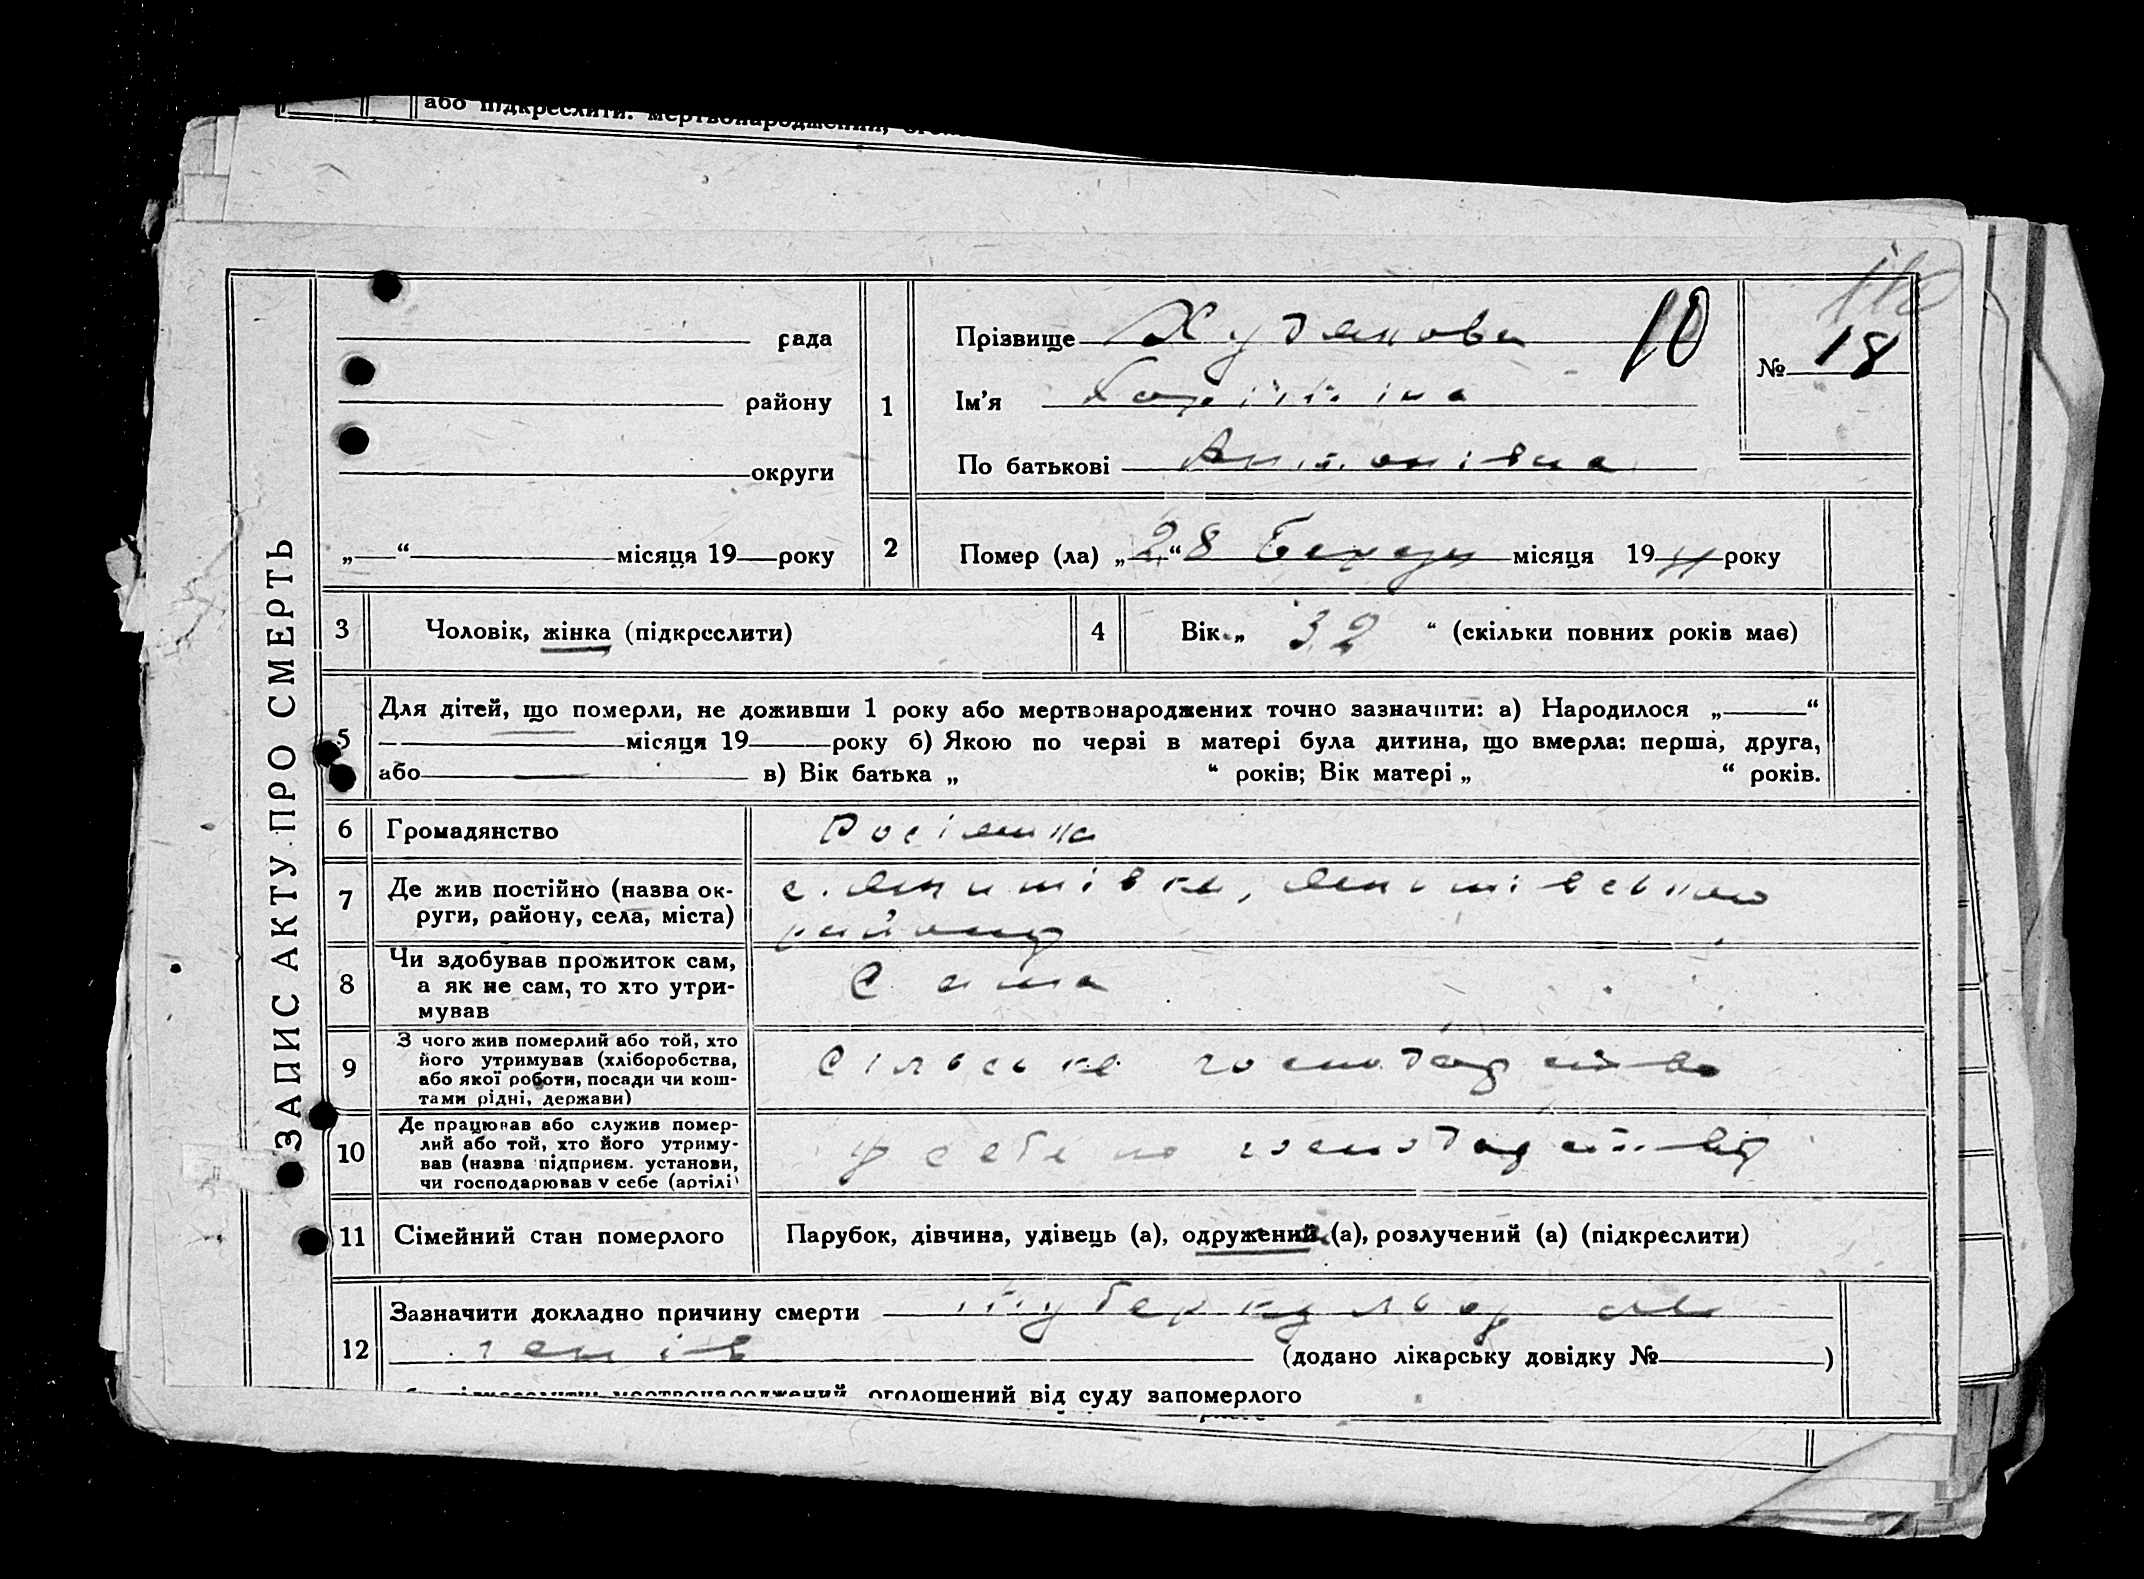 або підкреслити: мертвонароджений,
ЗАПИС АКТУ ПРО СМЕРТЬ
рада
району
округи
„ “ місяця 19 року
1
Прізвище Худякова 10
Ім'я
По батькові Антонівна
№ 18
2
Помер (ла) „28“ місяця 19 року
3
Чоловік, жінка (підкреслити)
4
Вік „ 32 “ (скільки повних років має)
5
Для дітей, що померли, не доживши 1 року або мертвонароджених точно зазначити: а) Народилося „ “
місяця 19 року б) Якою по черзі в матері була дитина, що вмерла: перша, друга,
або в) Вік батька „ “ років; Вік матері „ “ років.
6
Громадянство
Росіянка
7
Де жив постійно (назва ок-
руги, району, села, міста)
с.
району
8
Чи здобував прожиток сам,
а як не сам, то хто утри-
мував
Сама
9
З чого жив померлий або той, хто
його утримував (хліборобства,
або якої роботи, посади чи кош-
тами рідні, держави)
Сільське господарство
10
Де працював або служив помер-
лий або той, хто його утриму-
вав (назва підприєм. установи,
чи господарював у себе (артілі)
у себе по господарству
11
Сімейний стан померлого
Парубок, дівчина, удівець (а), одружений (а), розлучений (а) (підкреслити)
12
Зазначити докладно причину смерти туберкульоз
легенів (додано лікарську довідку № )
або підкреслити: мертвонароджений, оголошений від суду запомерлого